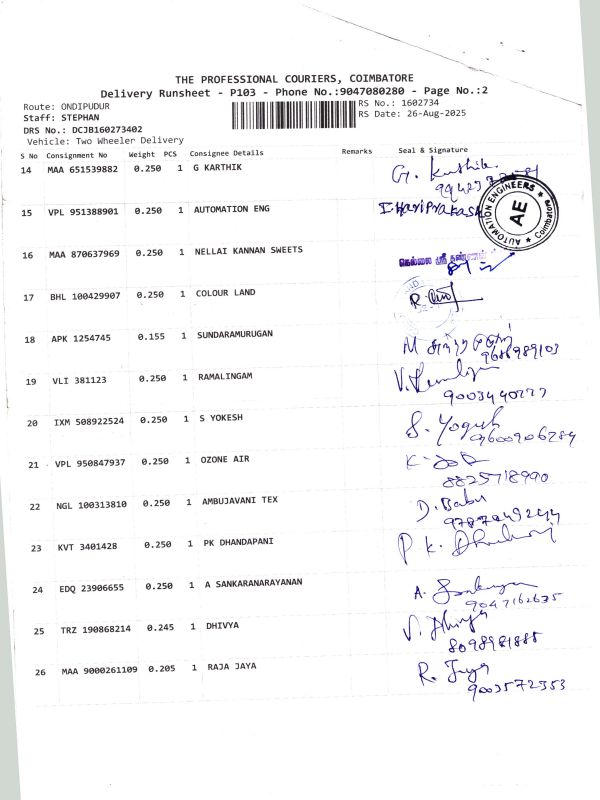 THE PROFESSIONAL COURIERS, COIMBATORE
Delivery Runsheet - P103 - Phone No.:9047080280 - Page No.:2
Route: ONDIPUDUR
RS No.: 1602734
Staff: STEPHAN
RS Date: 26-Aug-2025
DRS No.: DCJB160273402
Vehicle: Two Wheeler Delivery
S No Consignment No Weight PCS Consignee Details Remarks Seal & Signature
14 MAA 651539882 0.250 1 G KARTHIK G.
15 VPL 951388901 0.250 1 AUTOMATION ENG I. Hariprakash
AUTOMATION ENGINEERS
AE
Coimbatore
16 MAA 870637969 0.250 1 NELLAI KANNAN SWEETS
17 BHL 100429907 0.250 1 COLOUR LAND
18 APK 1254745 0.155 1 SUNDARAMURUGAN M
19 VLI 381123 0.250 1 RAMALINGAM V.
20 IXM 508922524 0.250 1 S YOKESH S.
9600906284
21 VPL 950847937 0.250 1 OZONE AIR
8825718990
22 NGL 100313810 0.250 1 AMBUJAVANI TEX D. Babu
23 KVT 3401428 0.250 1 PK DHANDAPANI P K.
24 EDQ 23906655 0.250 1 A SANKARANARAYANAN A.
9047162635
25 TRZ 190868214 0.245 1 DHIVYA V. Dhivya
26 MAA 9000261109 0.205 1 RAJA JAYA R. Jaya
9003572353